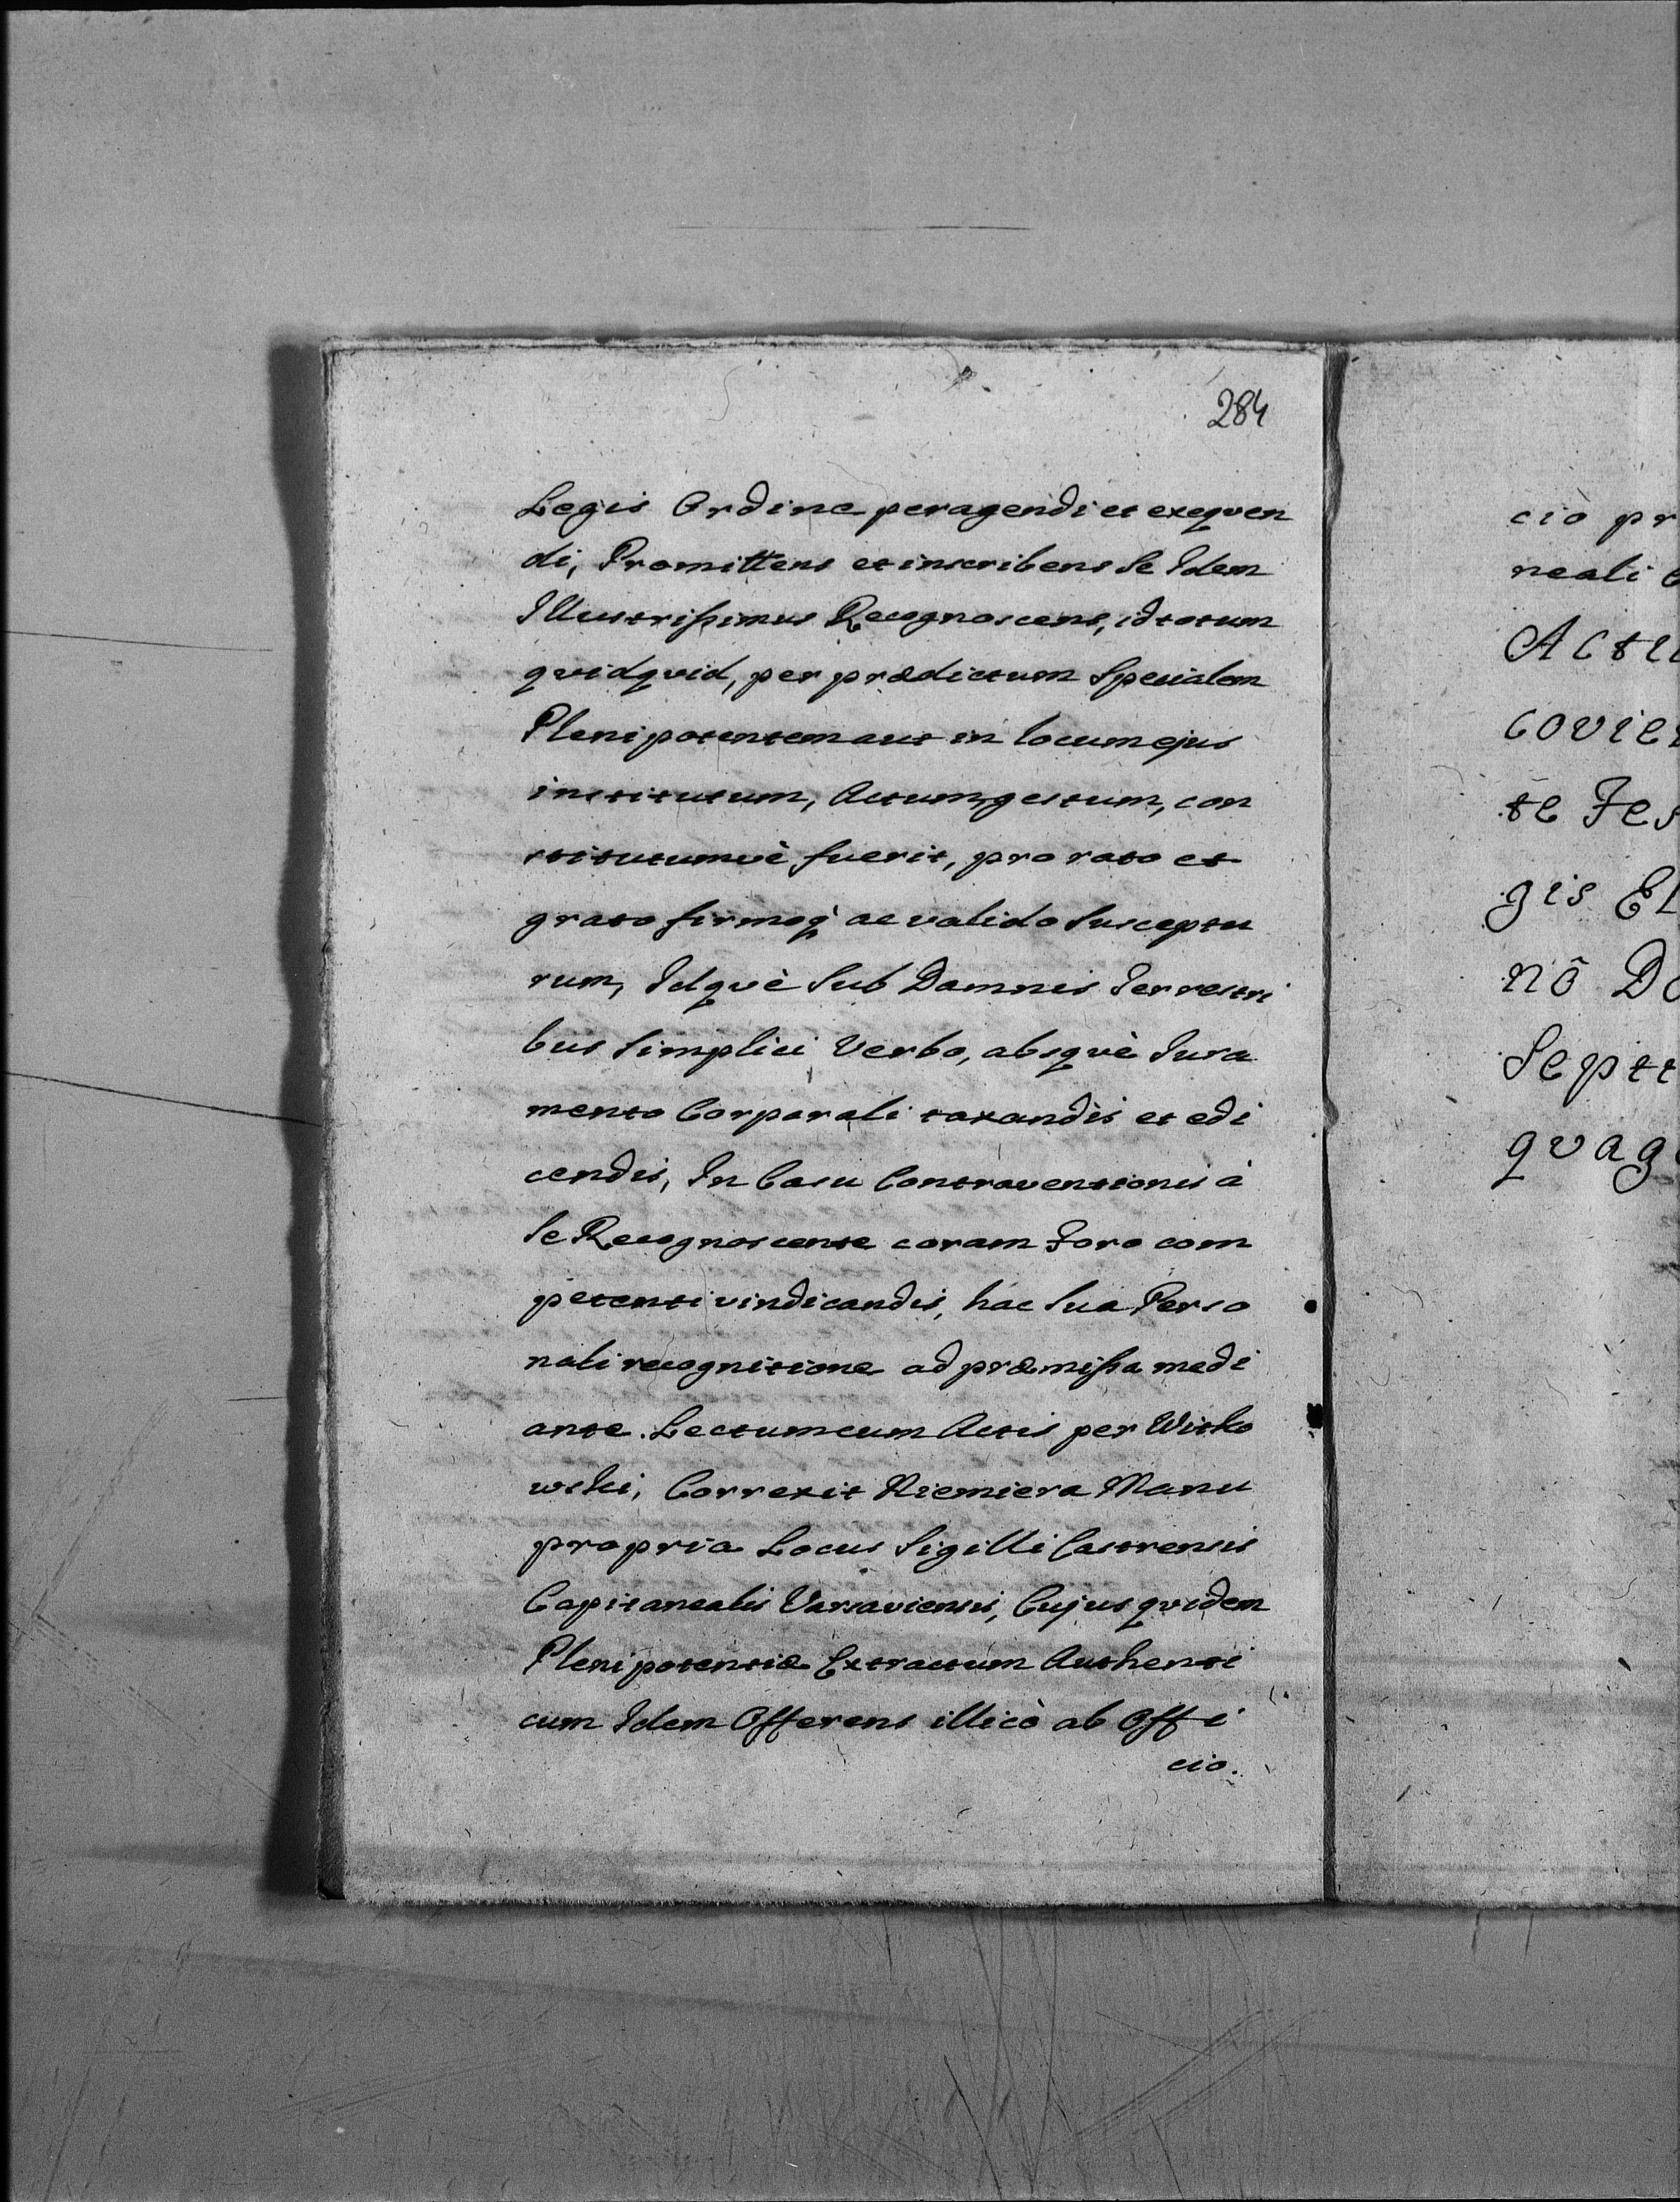 284
Legis Ordine peragendi et exequen
di, Promittens et inscribens Se Idem
Illustrissimus Recognoscens, id totum
quidquid, per prædictum Specialem
Plenipotentem aut in locum ejus
institutum, Actum, gestum, con
stitutumvè fuerit, pro rato et
grato firmoq̀ ac valido Susceptu
rum, Idquè Sub Damnis Terrestri
bus Simplici Verbo, absquè Jura
mento Corporali taxandis et edi
cendis, In Casu Contraventionis à
Se Recognoscente coram Foro com
petenti vindicandis, hac Sua Perso
nali recognitione ad præmissa medi
ante. Lectum cum Actis per Witko
wski, Correxit Niemiera Manu
propria Locus Sigilli Castrensis
Capitanealis Varsaviensis, Cujus quidem
Plenipotentiæ Extractum Authenti
cum Idem Offerens illicò ab Offi
cio.
ciò pr
neali C
Actu
covien
te Fes
gis El
nō Do
Sept
quag